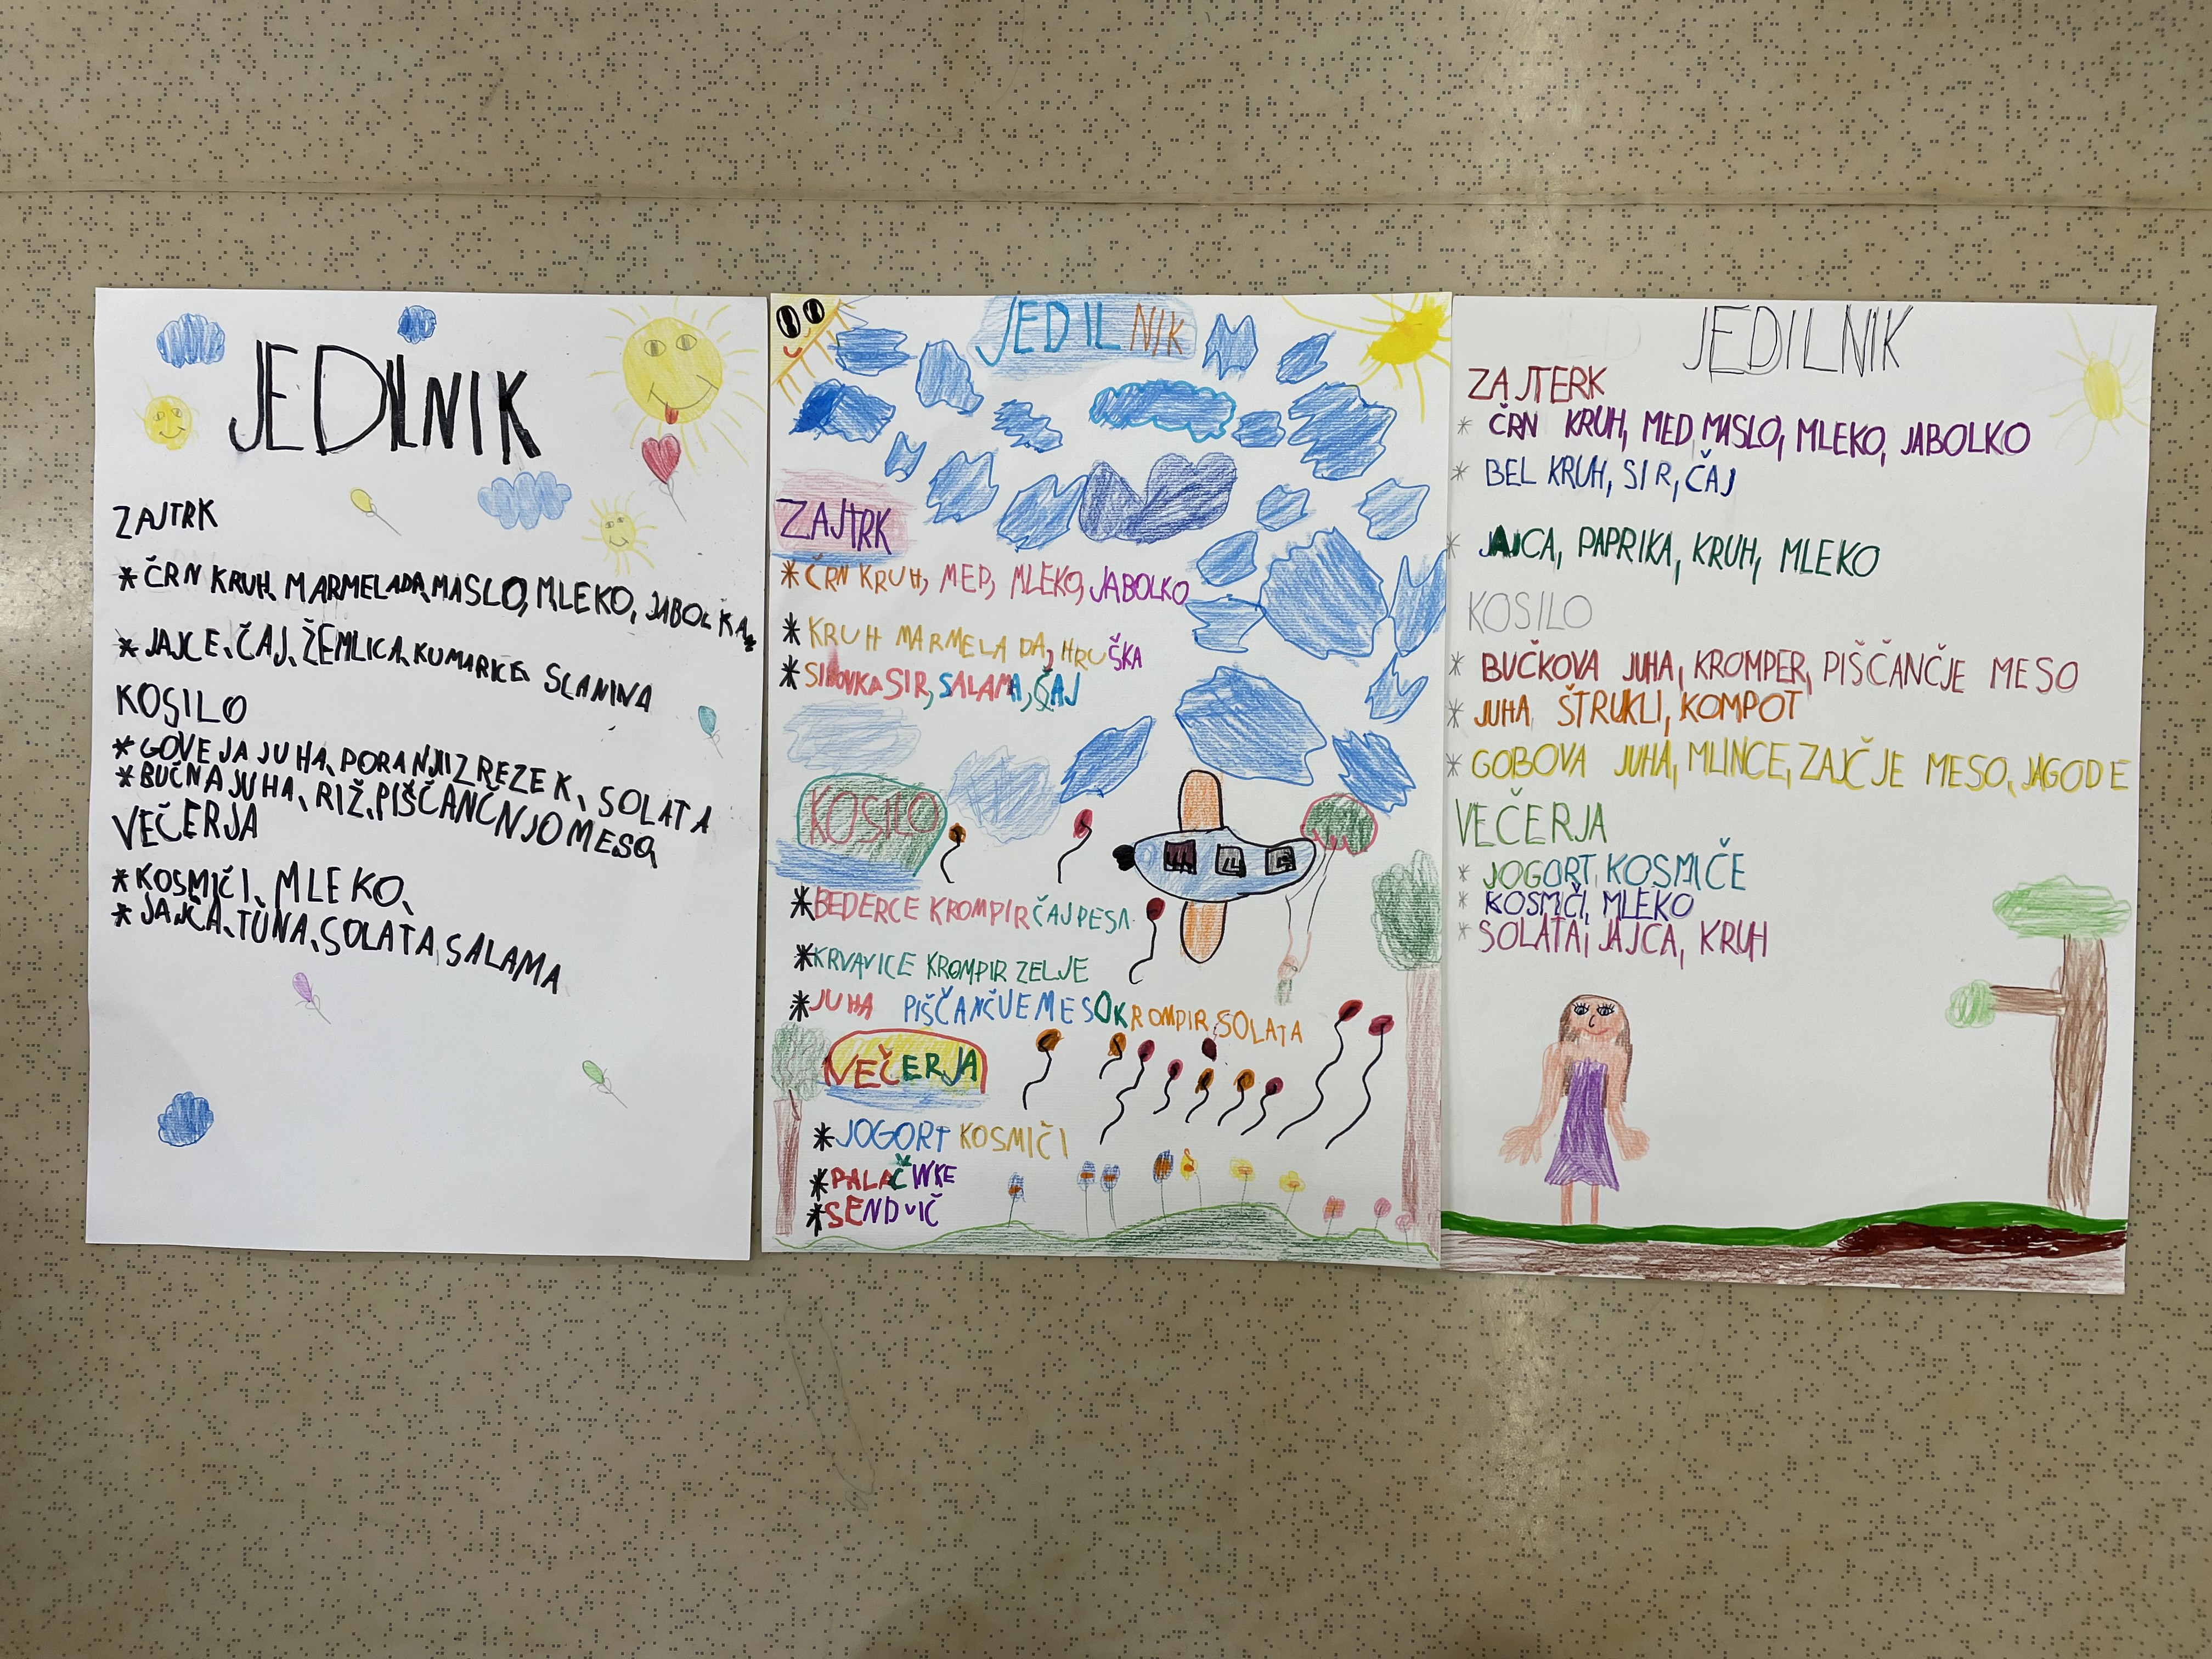 JEDILNIK
ZAJTRK
* ČRN KRUH, MARMELADA, MASLO, MLEKO, JABOLKA,
* JAJCE, ČAJ, ŽEMLJICA, KUMARICE, SLANINA
KOSILO
* GOVEJA JUHA, PORANJI ZREZEK, SOLATA
* BUČNA JUHA, RIŽ, PIŠČANČNJO MESO,
VEČERJA
* KOSMIČI, MLEKO,
* JAJCA, TUNA, SOLATA, SALAMA
JEDILNIK
ZAJTRK
* ČRN KRUH, MED, MLEKO, JABOLKO
* KRUH MARMELADA, HRUŠKA
* SIROVKA SIR, SALAMA, ČAJ
KOSILO
* BEDERCE KROMPIR ČAJ PESA
* KRVAVICE KROMPIR ZELJE
* JUHA PIŠČANČJE MESO KROMPIR SOLATA
VEČERJA
* JOGORT KOSMIČI
* PALAČINKE
* SENDVIČ
JEDILNIK
ZAJTERK
* ČRN KRUH, MED, MASLO, MLEKO, JABOLKO
* BEL KRUH, SIR, ČAJ
* JAJCA, PAPRIKA, KRUH, MLEKO
KOSILO
* BUČKOVA JUHA, KROMPER, PIŠČANČJE MESO
* JUHA, ŠTRUKLI, KOMPOT
* GOBOVA JUHA, MLINCE, ZAJČJE MESO, JAGODE
VEČERJA
* JOGORT, KOSMIČE
* KOSMIČI, MLEKO
* SOLATA, JAJCA, KRUH